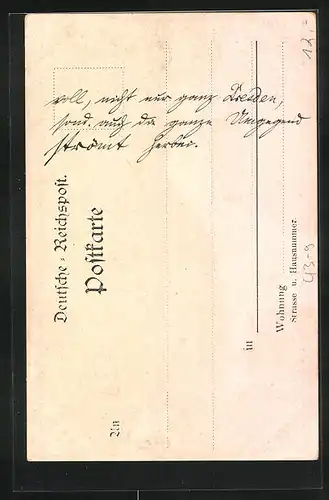 voll, nicht nur ganz Dresden,
sond. auch die ganze Umgegend
strömt herbei.
Deutsche Reichspost.
Postkarte
An
in
Wohnung
Strasse u. Hausnummer
12,-
43-9